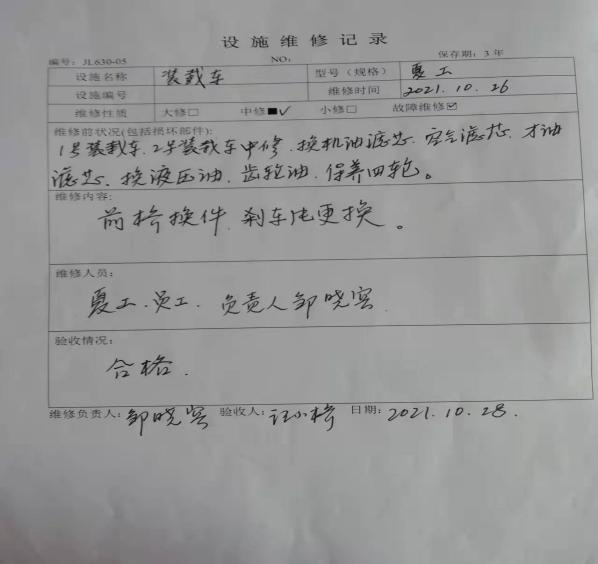 设施维修记录
编号：JL630-05 NO： 保存期：3 年
设施名称 装载车 型号（规格） 夏工
设施编号 维修时间 2021.10.26
维修性质 大修□ 中修■✓ 小修□ 故障维修☑
维修前状况(包括损坏部件):
1号装载车、2号装载车中修、换机油滤芯、空气滤芯、才油
滤芯、换液压油、齿轮油、保养四轮。
维修内容:
前桥换件、刹车 更换。
维修人员：
夏工、员工、负责人邹晓
验收情况：
合格.
维修负责人：邹晓 验收人：汪小 日期：2021.10.28.